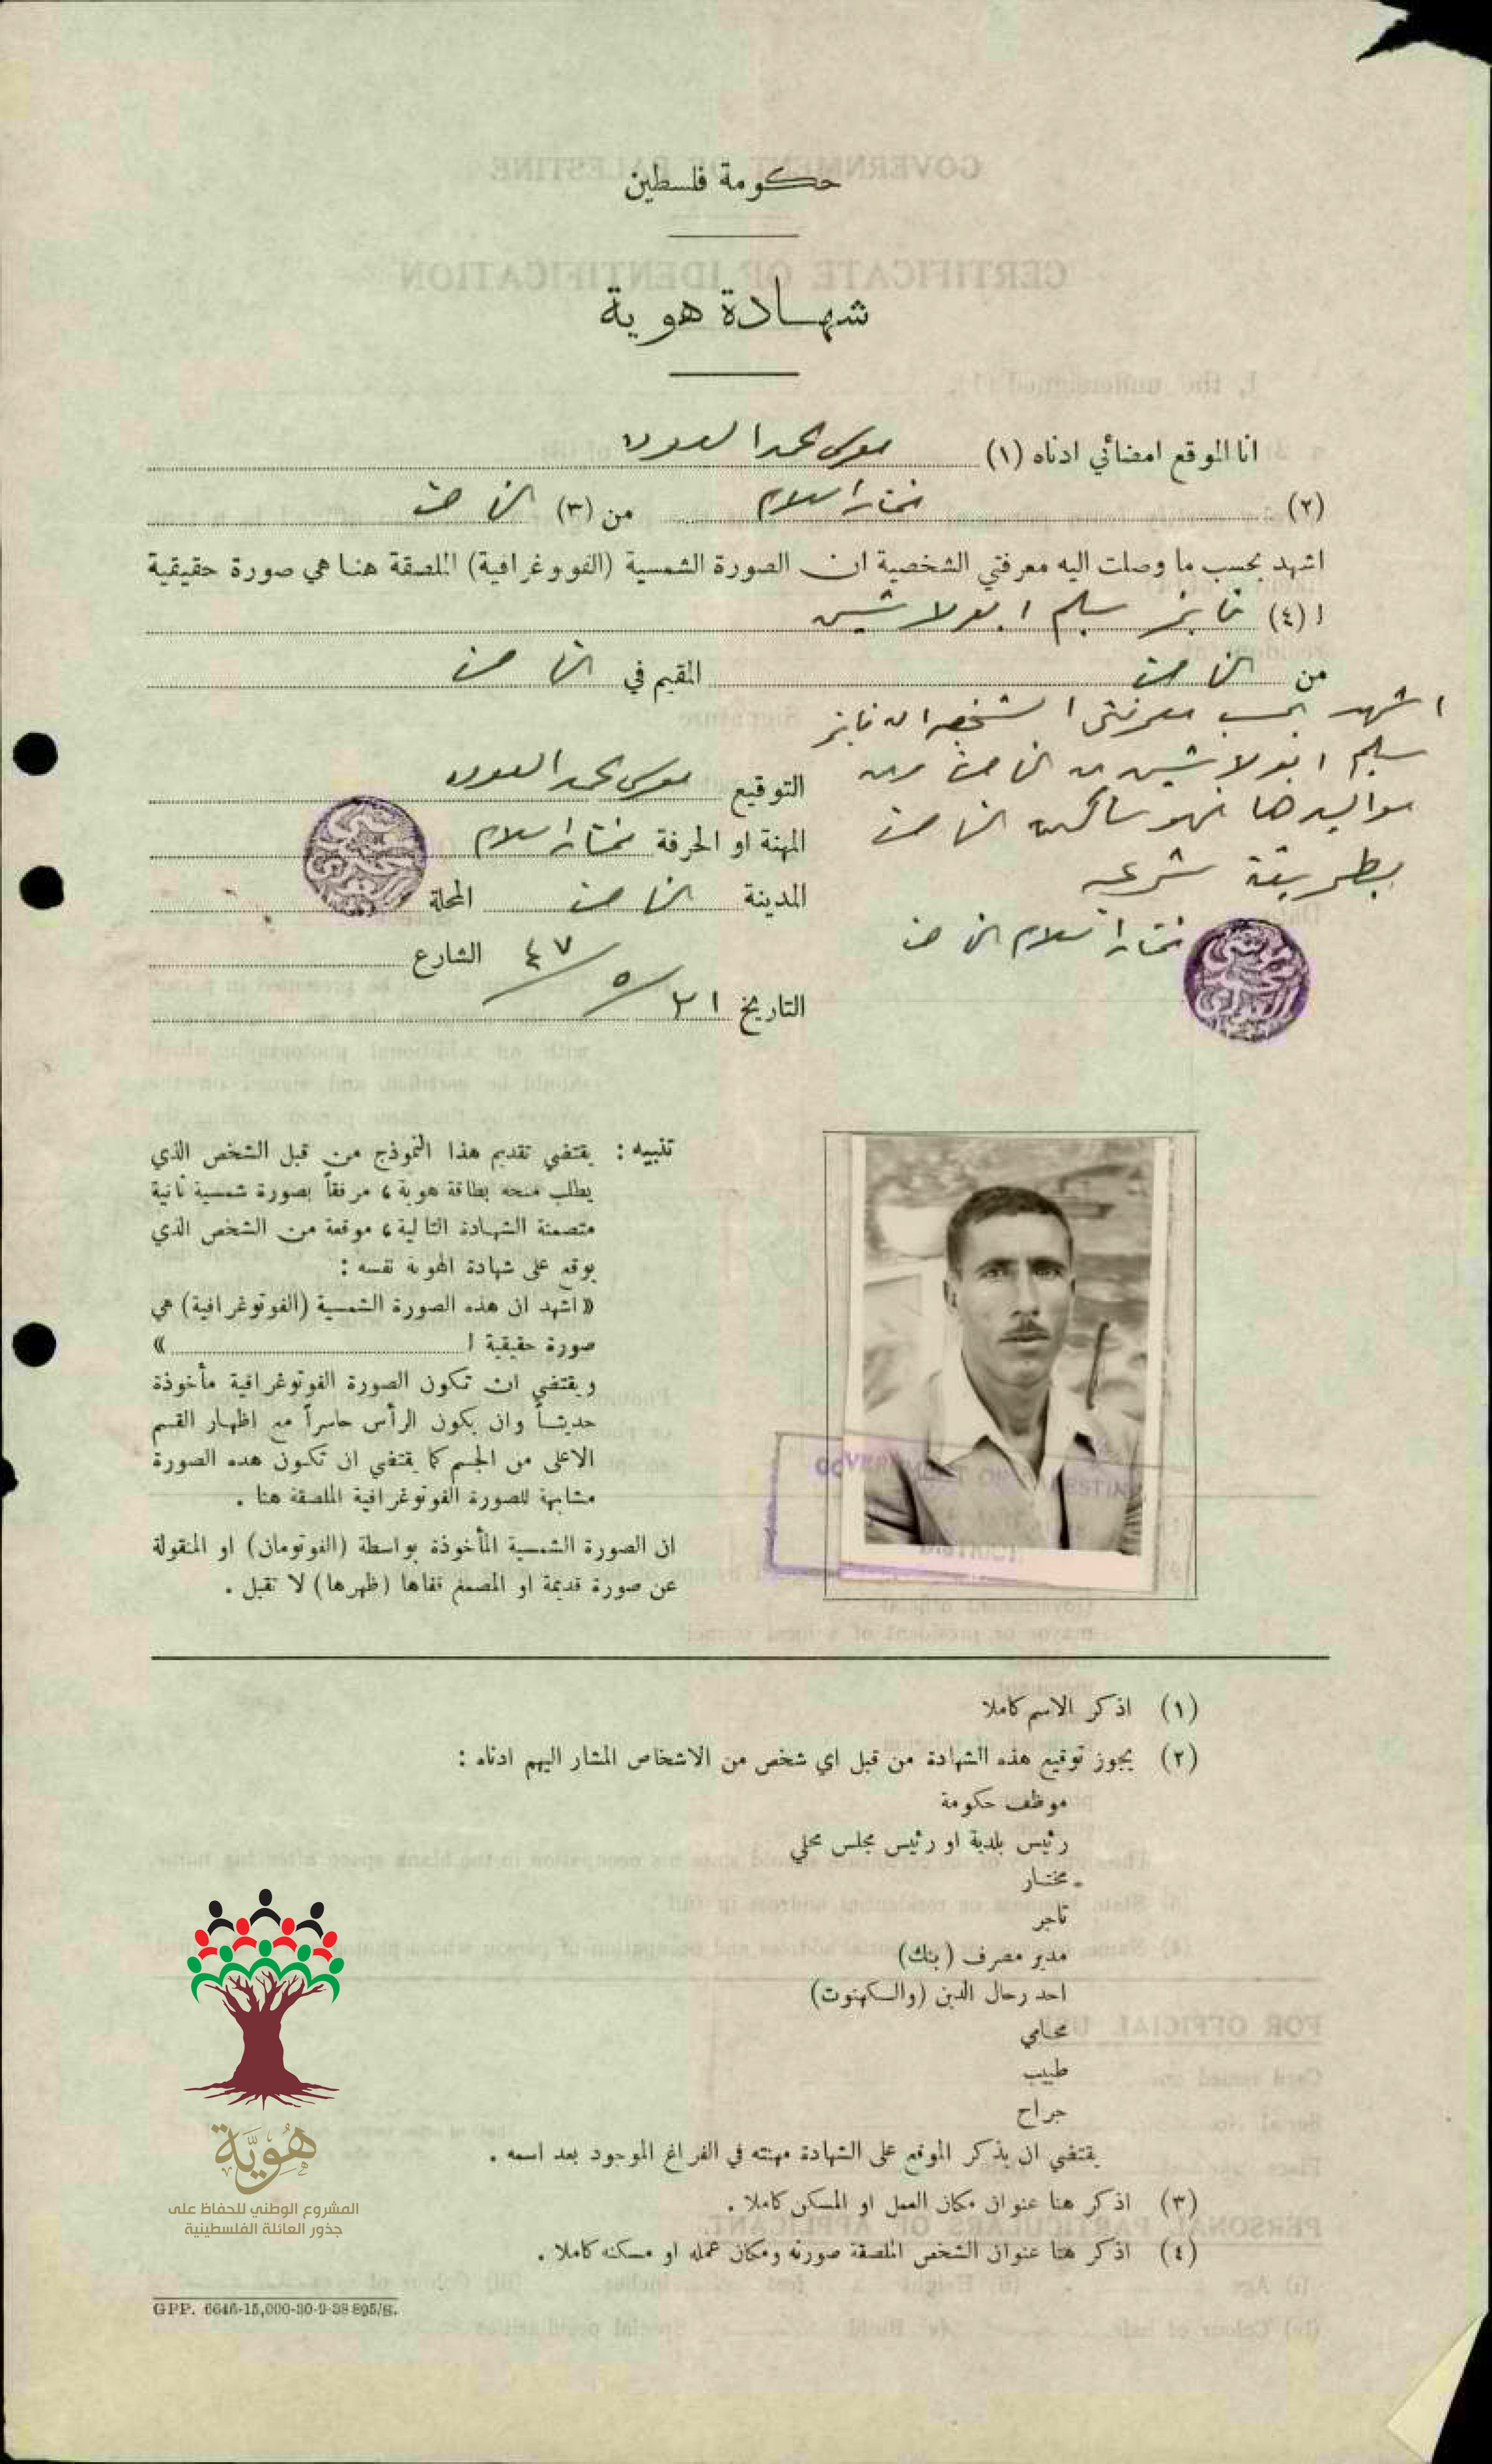 حكومة فلسطين
شهادة هوية
انا الموقع امضائي ادناه (١) موسى محمد السعود
(٢) مختار اسلام من (٣) الناصرة
اشهد بحسب ما وصلت اليه معرفتي الشخصية ان الصورة الشمسية (الفوتوغرافية) الملصقة هنا هي صورة حقيقية
ا (٤) فايز سليم ابو لاشين
من الناصرة المقيم في الناصرة
اشهد بحسب معرفتي الشخصية ان فايز
سليم ابو لاشين من الناصرة ومن
مواليدها فهو ساكن الناصرة
بطريقة شرعية
مختار اسلام الناصرة
التوقيع موسى محمد السعود
المهنة او الحرفة مختار اسلام
المدينة الناصرة المحلة
الشارع
التاريخ ٣١/٥/٤٧
تنبيه : يقتضي تقديم هذا النموذج من قبل الشخص الذي
يطلب منحه بطاقة هوية ، مرفقاً بصورة شمسية ثانية
متضمنة الشهادة التالية ، موقعة من الشخص الذي
يوقع على شهادة الهوية نفسه :
« اشهد ان هذه الصورة الشمسية (الفوتوغرافية) هي
صورة حقيقية ا »
ويقتضي ان تكون الصورة الفوتوغرافية مأخوذة
حديثاً وان يكون الرأس حاسراً مع اظهار القسم
الاعلى من الجسم كما يقتضي ان تكون هذه الصورة
مشابهة للصورة الفوتوغرافية الملصقة هنا .
ان الصورة الشمسية المأخوذة بواسطة (الفوتومان) او المنقولة
عن صورة قديمة او المصمغ قفاها (ظهرها) لا تقبل .
GOVERNMENT OF PALESTINE
DISTRICT
(١) اذكر الاسم كاملا
(٢) يجوز توقيع هذه الشهادة من قبل اي شخص من الاشخاص المشار اليهم ادناه :
موظف حكومة
رئيس بلدية او رئيس مجلس محلي
مختار
تاجر
مدير مصرف (بنك)
احد رجال الدين (والكهنوت)
محامي
طبيب
جراح
يقتضي ان يذكر الموقع على الشهادة مهنته في الفراغ الموجود بعد اسمه .
(٣) اذكر هنا عنوان مكان العمل او المسكن كاملا .
(٤) اذكر هنا عنوان الشخص الملصقة صورته ومكان عمله او مسكنه كاملا .
هُوِيَّة
المشروع الوطني للحفاظ على
جذور العائلة الفلسطينية
GPP. 6646-15,000-30-9-38 895/S.